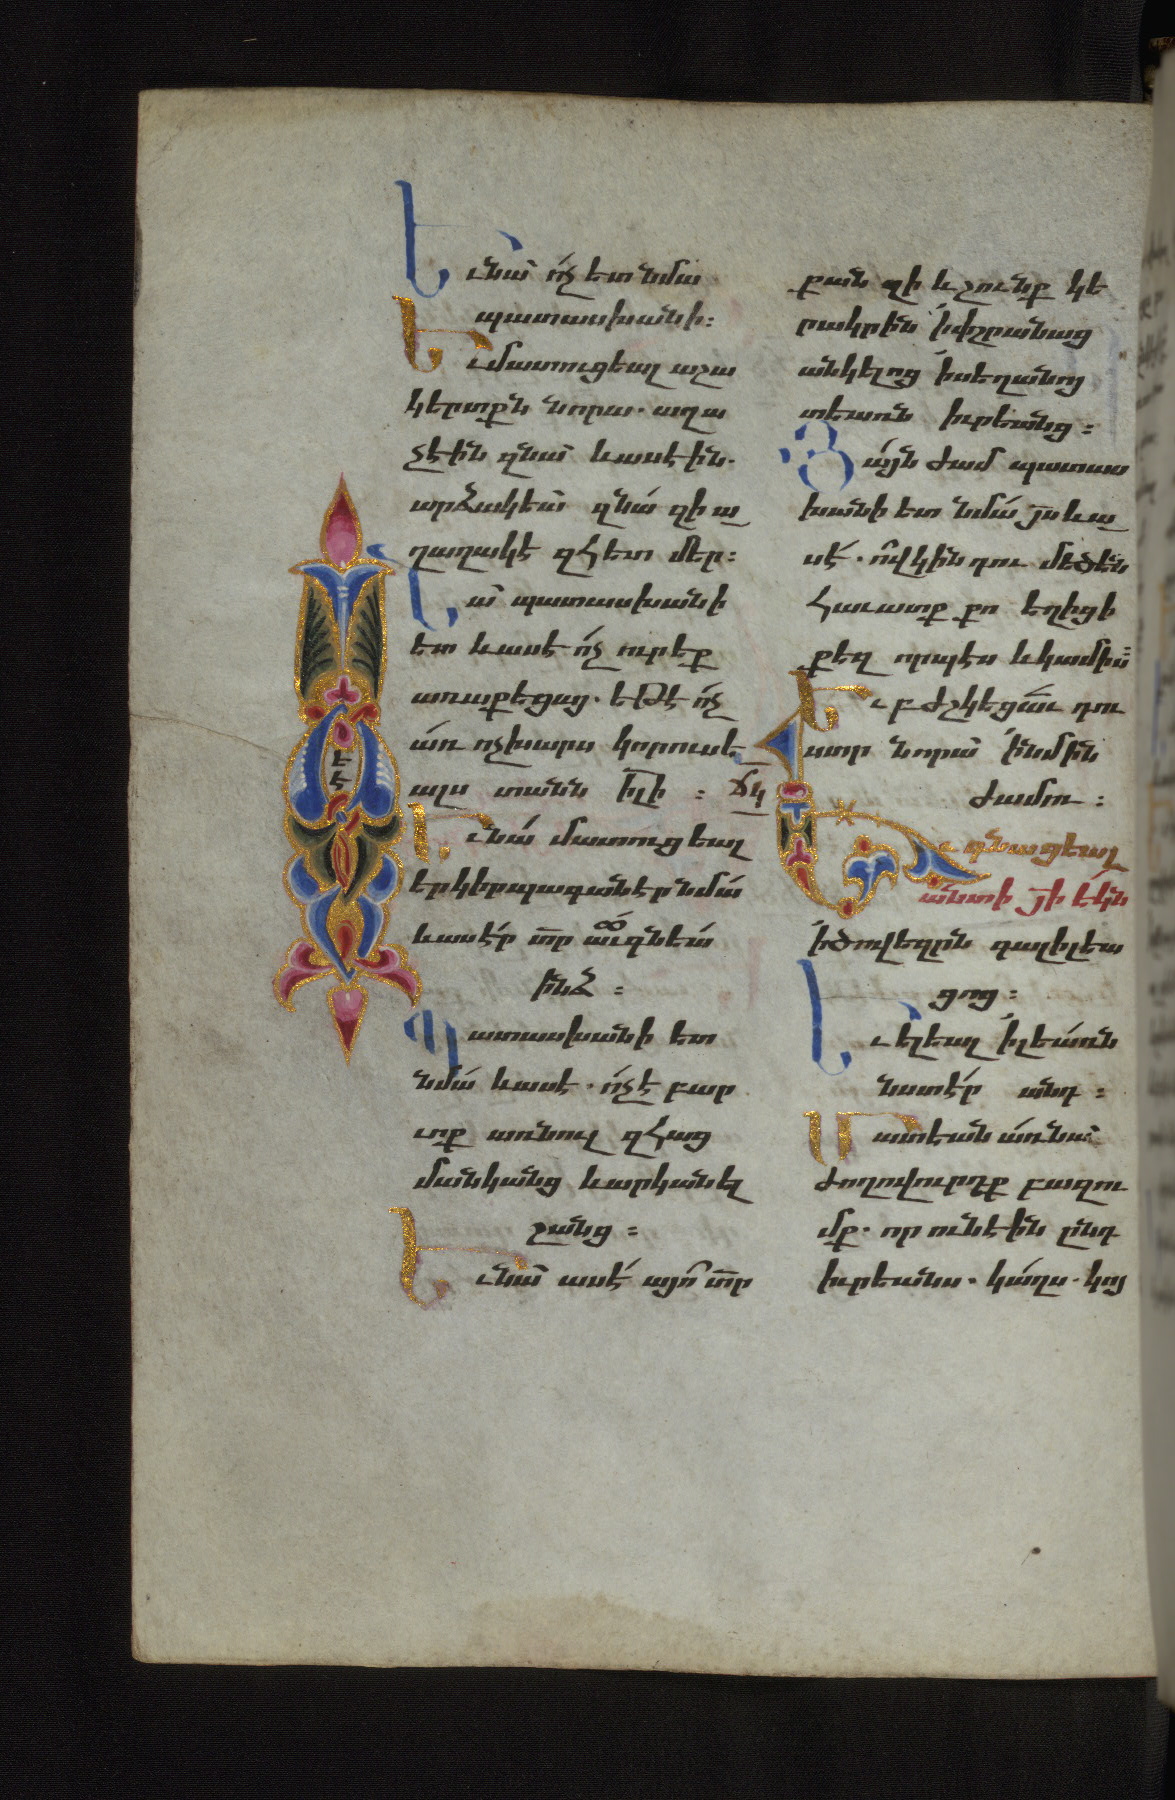 Եւ նա՛ ո՛չ ետ նմա
պատասխանի։
Եւ մատուցեալ աշա
կերտքն նորա. աղա
չէին զնա՛ և ասէին.
արձակեա՛ զնա՛ զի ա
ղաղակէ զհետ մեր։
Նա՛ պատասխանի
ետ և ասէ ո՛չ ուրեք
առաքեցայ. եթէ ո՛չ
ա՛ռ ոչխարս կորուսե
ալս տանն իլի ։ ՃԿ
Եւ նա՛ մատուցեալ
երկերպագանէր նմա՛
և ասէ՛ր տր աւգնեա՛
ինձ ։
Պատասխանի ետ
նմա՛ և ասէ. ո՛չ է բար
ւոք առնուլ զհաց
մանկանց և արկանել
շանց ։
Եւ նա՛ ասէ՛ այո՛ տր
ԵԷ
քան զի և շունք կե
րակրին ի փշրանաց
անկելոց ի սեղանոյ
տեառն իւրեանց ։
Յայն ժամ պատաս
խանի ետ նմա՛ յս և ա
սէ՛. ո՛վ կին դու մեծ են
հաւատք քո եղիցի
քեզ որպէս և կամիս։
Եւ բժշկեցաւ դու
ստր նորա՛ ի նմին
ժամու ։
Եւ գնացեալ
անտի յի եկն
ի ծովեզրն գալիլեա
ցոց ։
Եւ ելեալ ի լեառն
նստէր անդ ։
Մատեան առ նա՛
ժողովուրդք բազու
մք. որ ունէին ընդ
իւրեանս. կաղս. կոյ